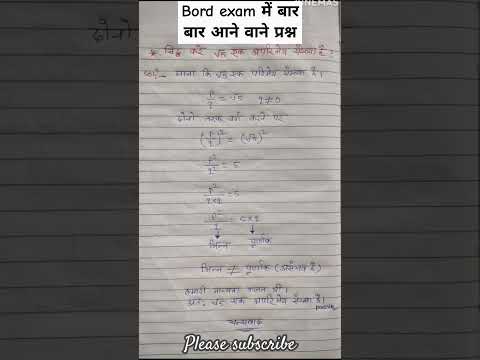 INEMAS
Bord exam में बार
बार आने वाने प्रश्न
दोनो
* सिद्ध करें √5 एक अपरिमेय संख्या है।
माना कि √5 एक परिमेय संख्या है।
p/q = √5 q ≠ 0
दोनो तरफ वर्ग करने पर
(p/q)² = (√5)²
p²/q² = 5
p²/q×q = 5
p²/q = 5×q
भिन्न पूर्णांक
भिन्न ≠ पूर्णांक (असंभव है)
हमारी मान्यता गलत थी।
अतः √5 एक अपरिमेय संख्या है।
धन्यवाद
Please subscribe